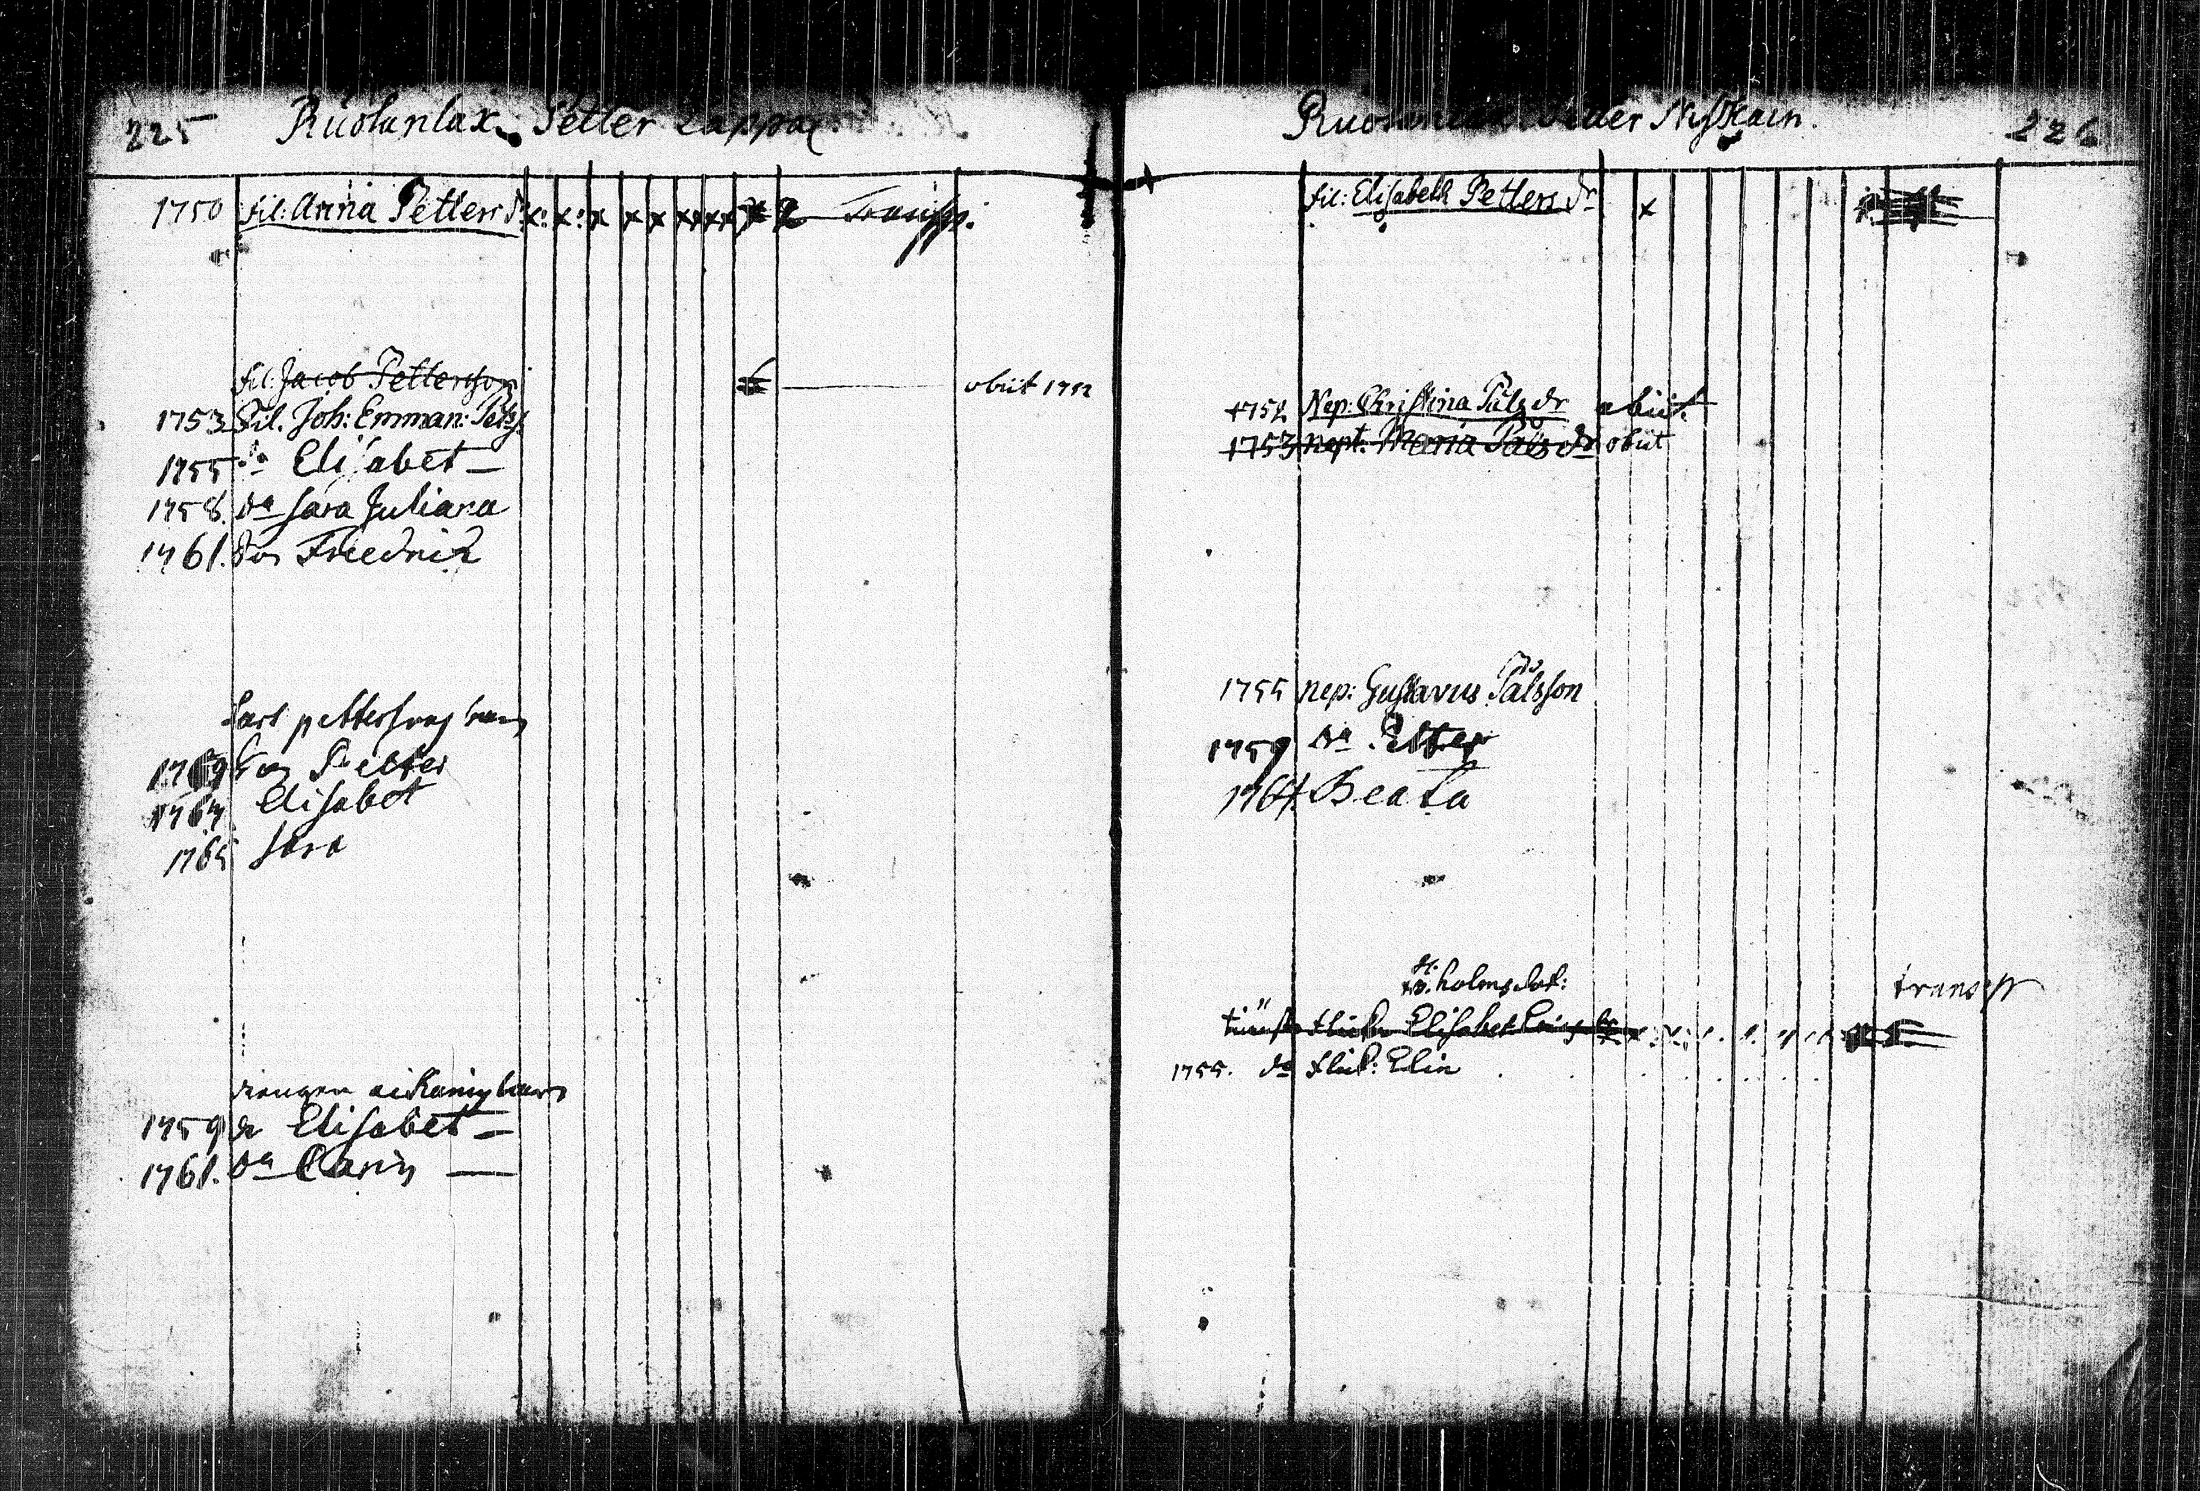 225 Ruotanlax. Petter Lappax
1750 fil: Anna Petters dr x x x x x x x x x Transp.
fil: Jacob Pettersson obiit 1752
1753 Fil. Joh: Emman: Petss.
1755 dr Elisabet —
1758. dr Sara Juliana
1761. Son Fredrich
Lars pettersons barn
1769 Son Petter
1767 Elisabet
1765 Sara
drengen barn
1759 dr Elisabet —
1761. dr Carin —
Petter 226
fil: Elisabeth Petters dr x
1752 Nep: Christina Påls dr obiit.
1753 nept. Maria Påls dr obiit
1755 nep: Gustavus Pålsson
1759 dr Petter
1764. Beata
holms dot: transp
flicka Elisabet
1755. do flick: Elin